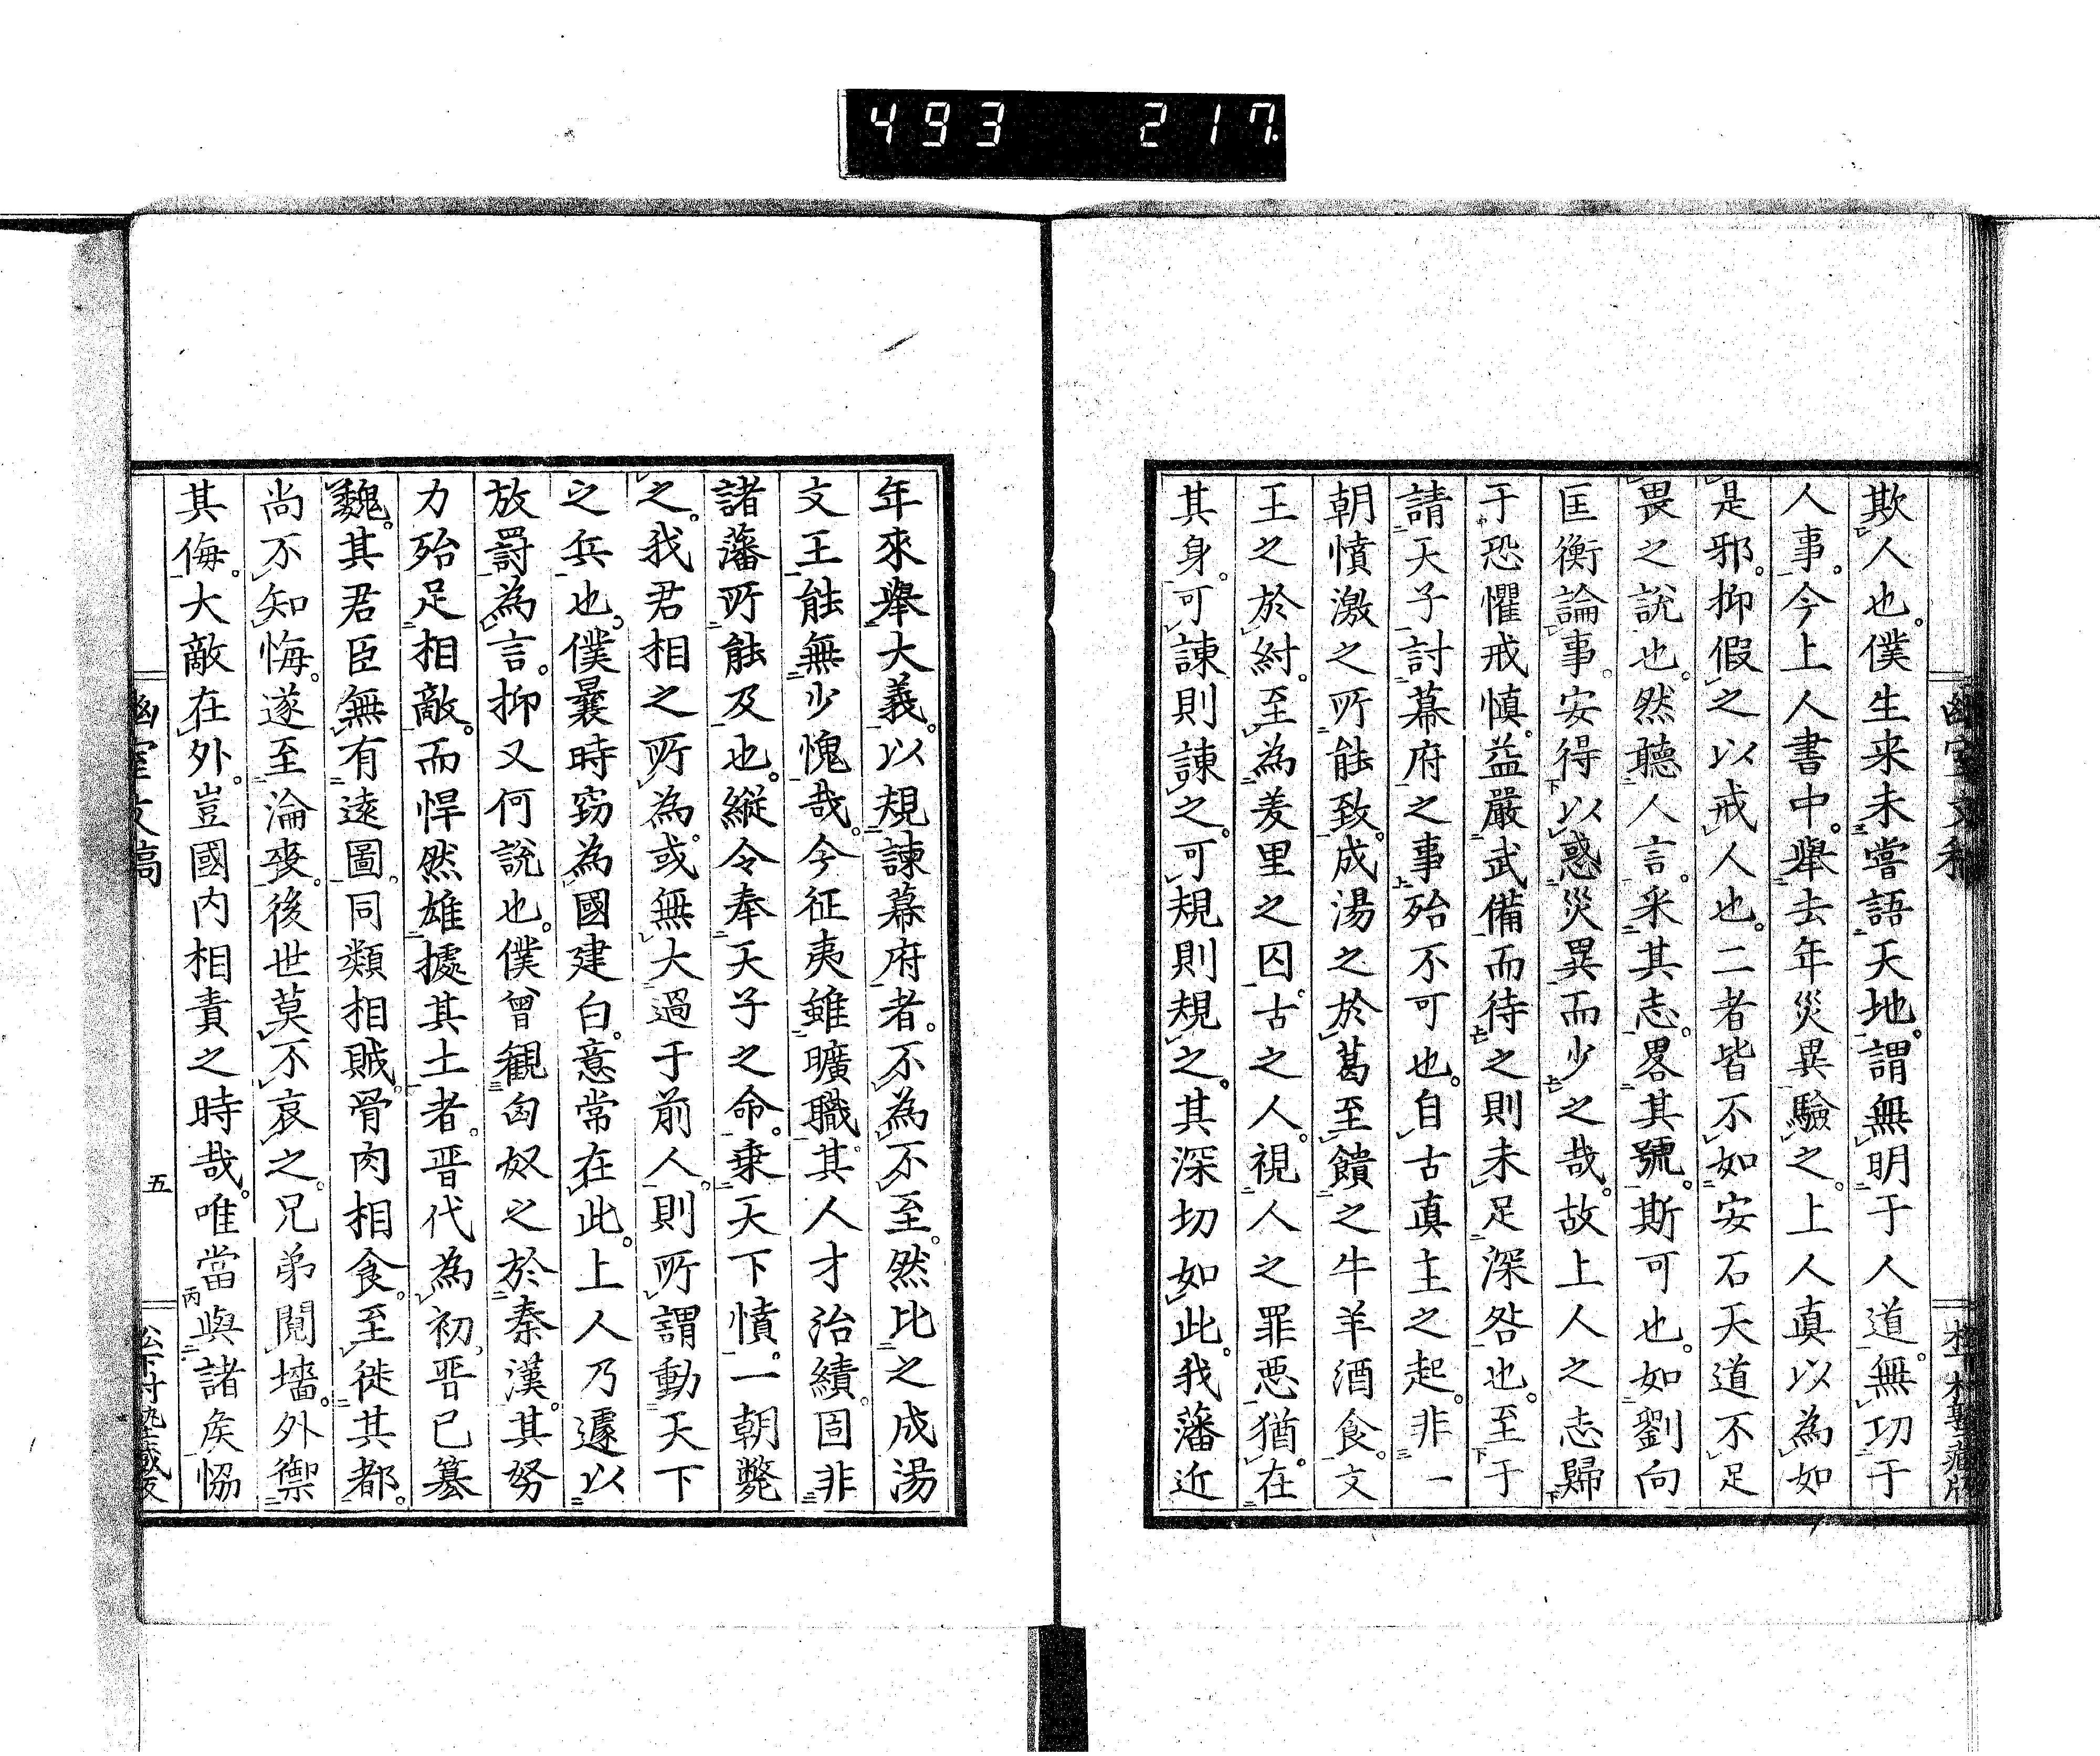 493 217
幽室文稿 松下村塾藏版
欺人也。僕生来未嘗語天地。謂無明于人道。無功于
人事。今上人書中。舉去年災異驗之。上人真以為如
是邪。抑假之以戒人也。二者皆不如安石天道不足
畏之說也。然聽人言。采其志。畧其號。斯可也。如劉向
匡衡論事。安得以惑災異而少之哉。故上人之志歸
于恐懼戒慎。益嚴武備而待之則未足深咎也。至于
請天子討幕府之事殆不可也。自古真主之起。非一
朝憤激之所能致。成湯之於葛至饋之牛羊酒食。文
王之於紂。至為羑里之囚。古之人。視人之罪惡。猶在
其身。可諫則諫之。可規則規之。其深切如此。我藩近
年來舉大義。以規諫幕府者。不為不至。然比之成湯
文王能無少愧哉。今征夷雖曠職其人才治績。固非
諸藩所能及也。縱令奉天子之命。乗天下憤。一朝斃
之。我君相之所為。或無大過于前人。則所謂動天下
之兵也。僕曩時竊為國建白。意常在此。上人乃遽以
放罸為言。抑又何說也。僕曾観匈奴之於秦漢。其努
力殆足相敵。而悍然雄據其土者。晋代為初。晋已簒
魏。其君臣無有遠圖。同類相賊。骨肉相食。至徙其都。
尚不知悔。遂至淪喪。後世莫不哀之。兄弟鬩墻。外禦
其侮。大敵在外。豈國内相責之時哉。唯當與諸矦恊
幽室文稿 五 松下村塾藏版